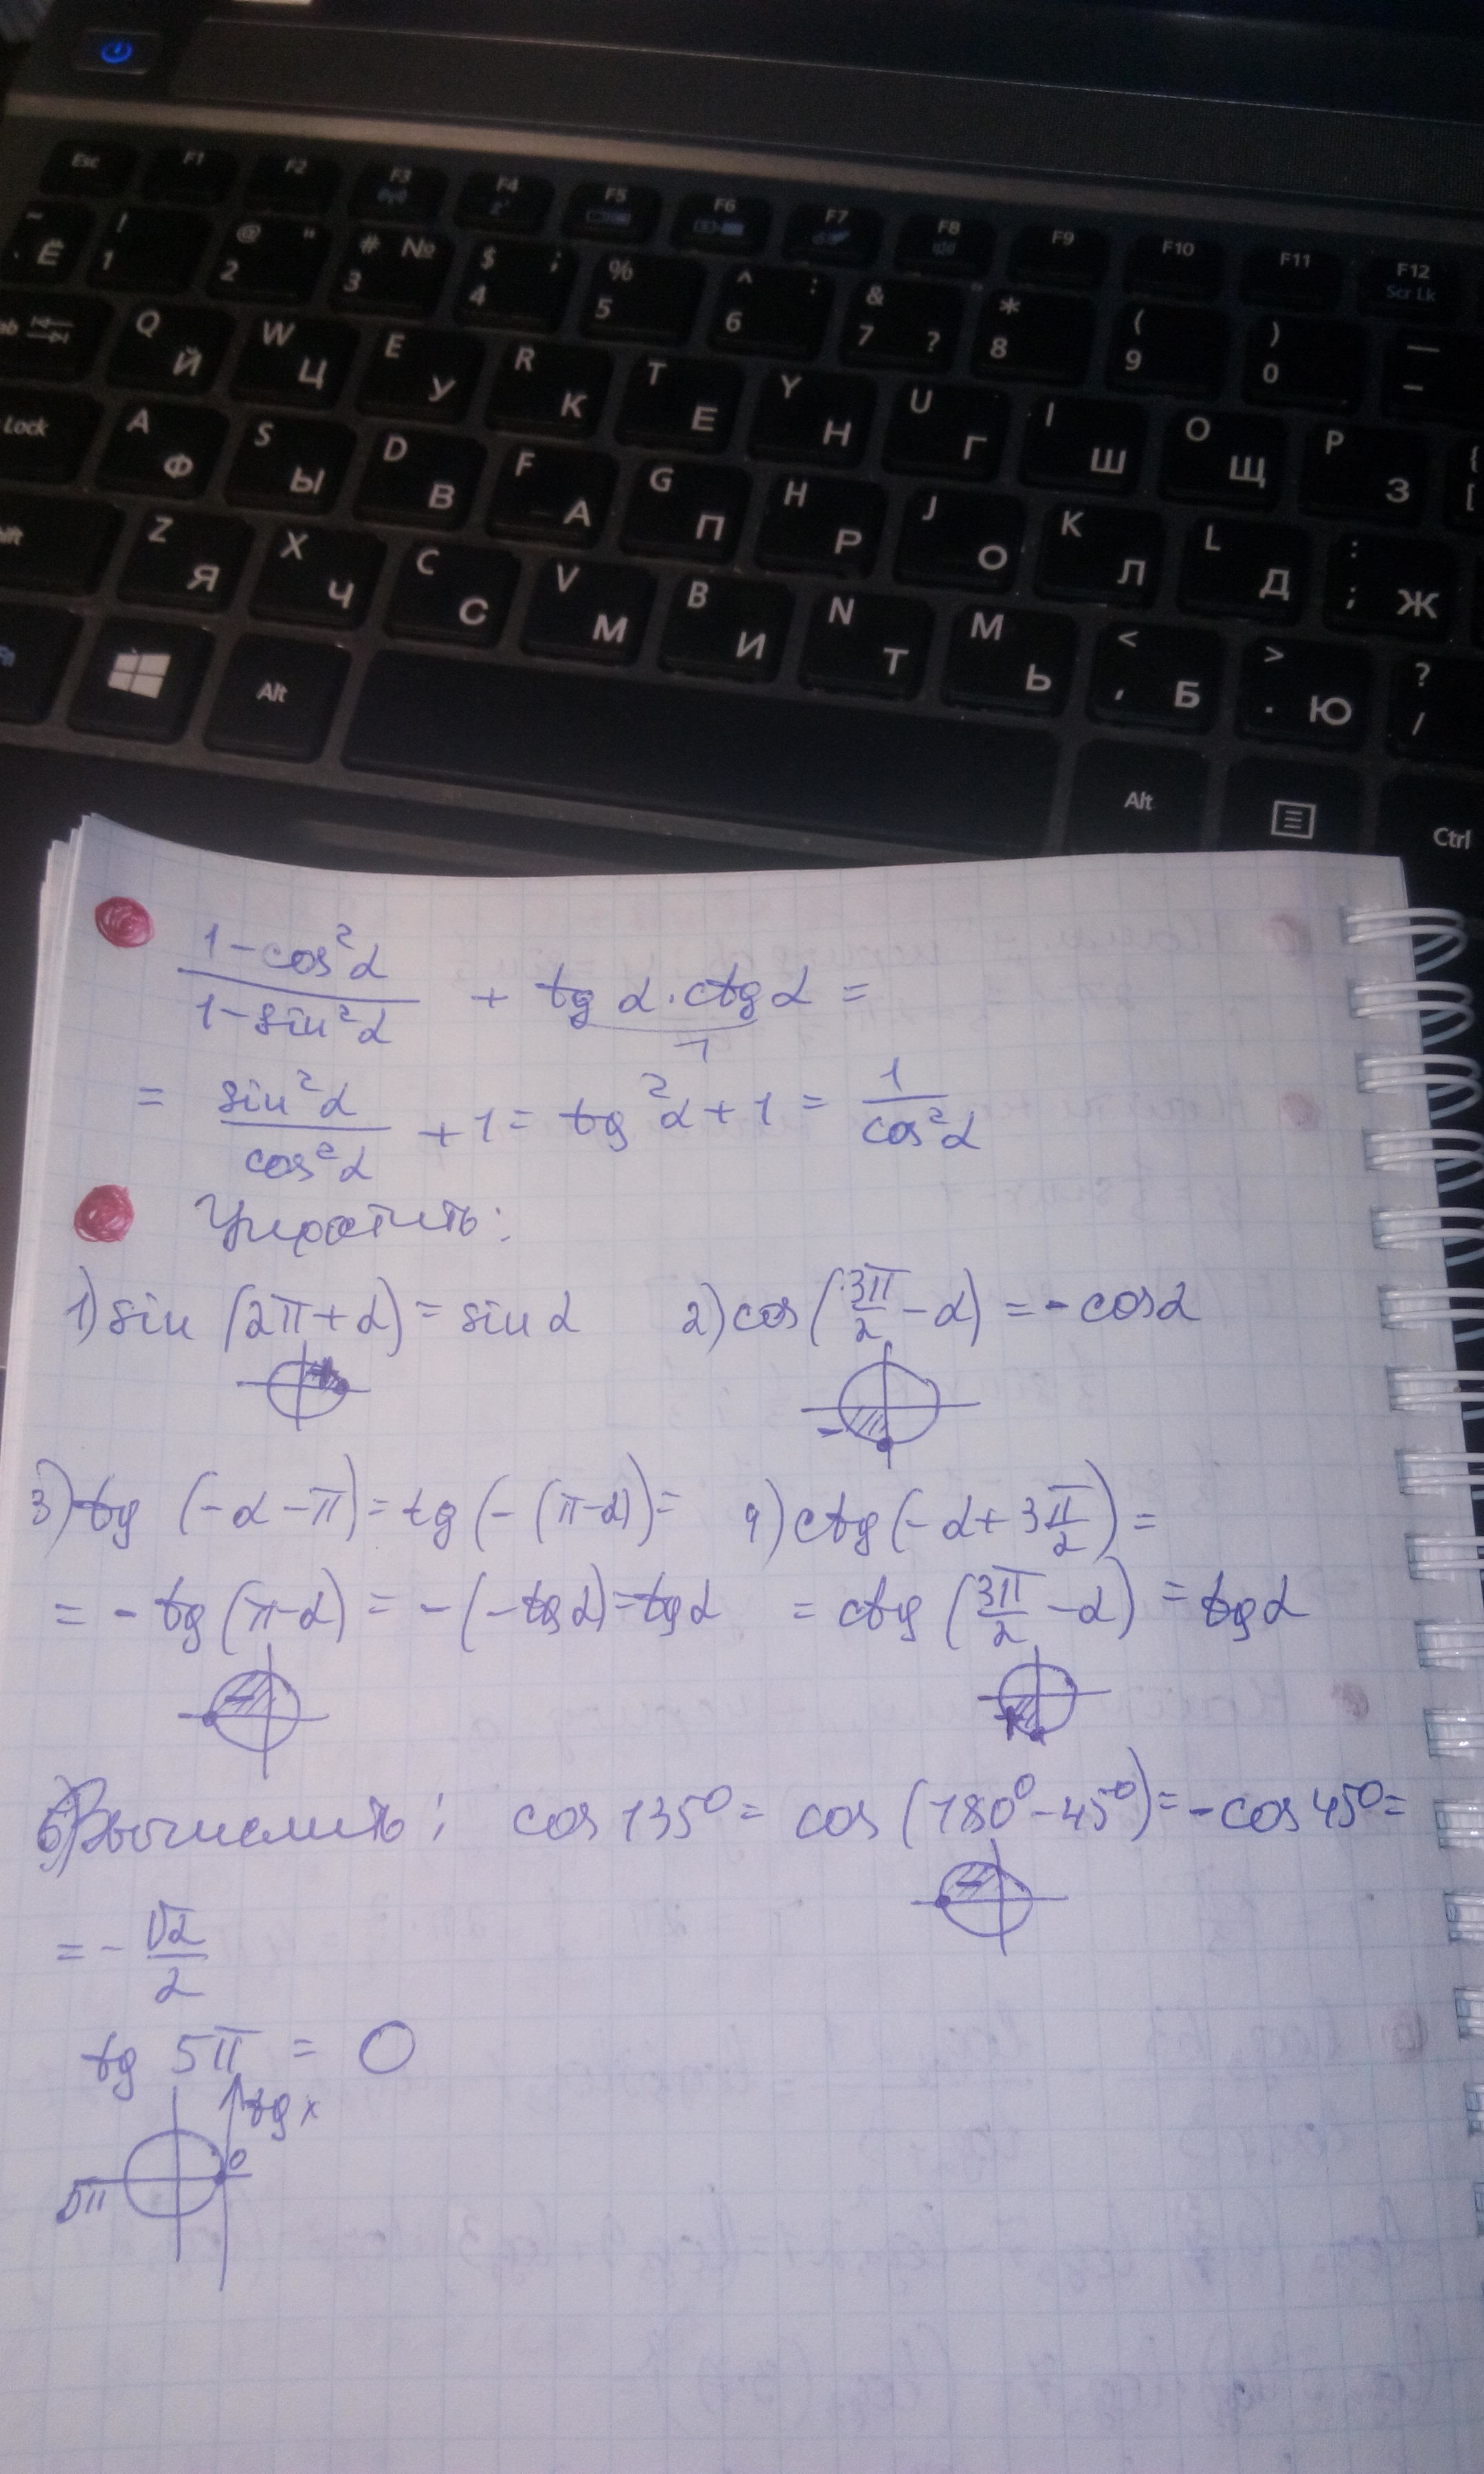 Esc F1 F2 F3 F4 F5 F6 F7 F8 F9 F10 F11 F12 Scr Lk
~ Ё ! 1 @ " 2 # № 3 $ ; 4 % 5 ^ : 6 & 7 ? * 8 ( 9 ) 0 — –
Q Й W Ц E У R К T Е Y Н U Г I Ш O Щ P З { [
Lock A Ф S Ы D В F А G П H Р J О K Л L Д : ; Ж
Z Я X Ч C С V М B И N Т M Ь < , Б > . Ю ? /
Fn Alt Alt Ctrl
(1-cos²α)/(1-sin²α) + tg α · ctg α =
1
= sin²α/cos²α + 1 = tg²α + 1 = 1/cos²α
Упростить:
1) sin (2π+α) = sin α 2) cos (3π/2 - α) = - cos α
+
-
3) tg (-α-π) = tg (-(π-α)) = 4) ctg (-α+3π/2) =
= - tg (π-α) = - (-tg α) = tg α = ctg (3π/2 - α) = tg α
- +
б) Вычислить: cos 135° = cos (180°-45°) = - cos 45° =
-
= - √2/2
tg 5π = 0
tg x
0
5π